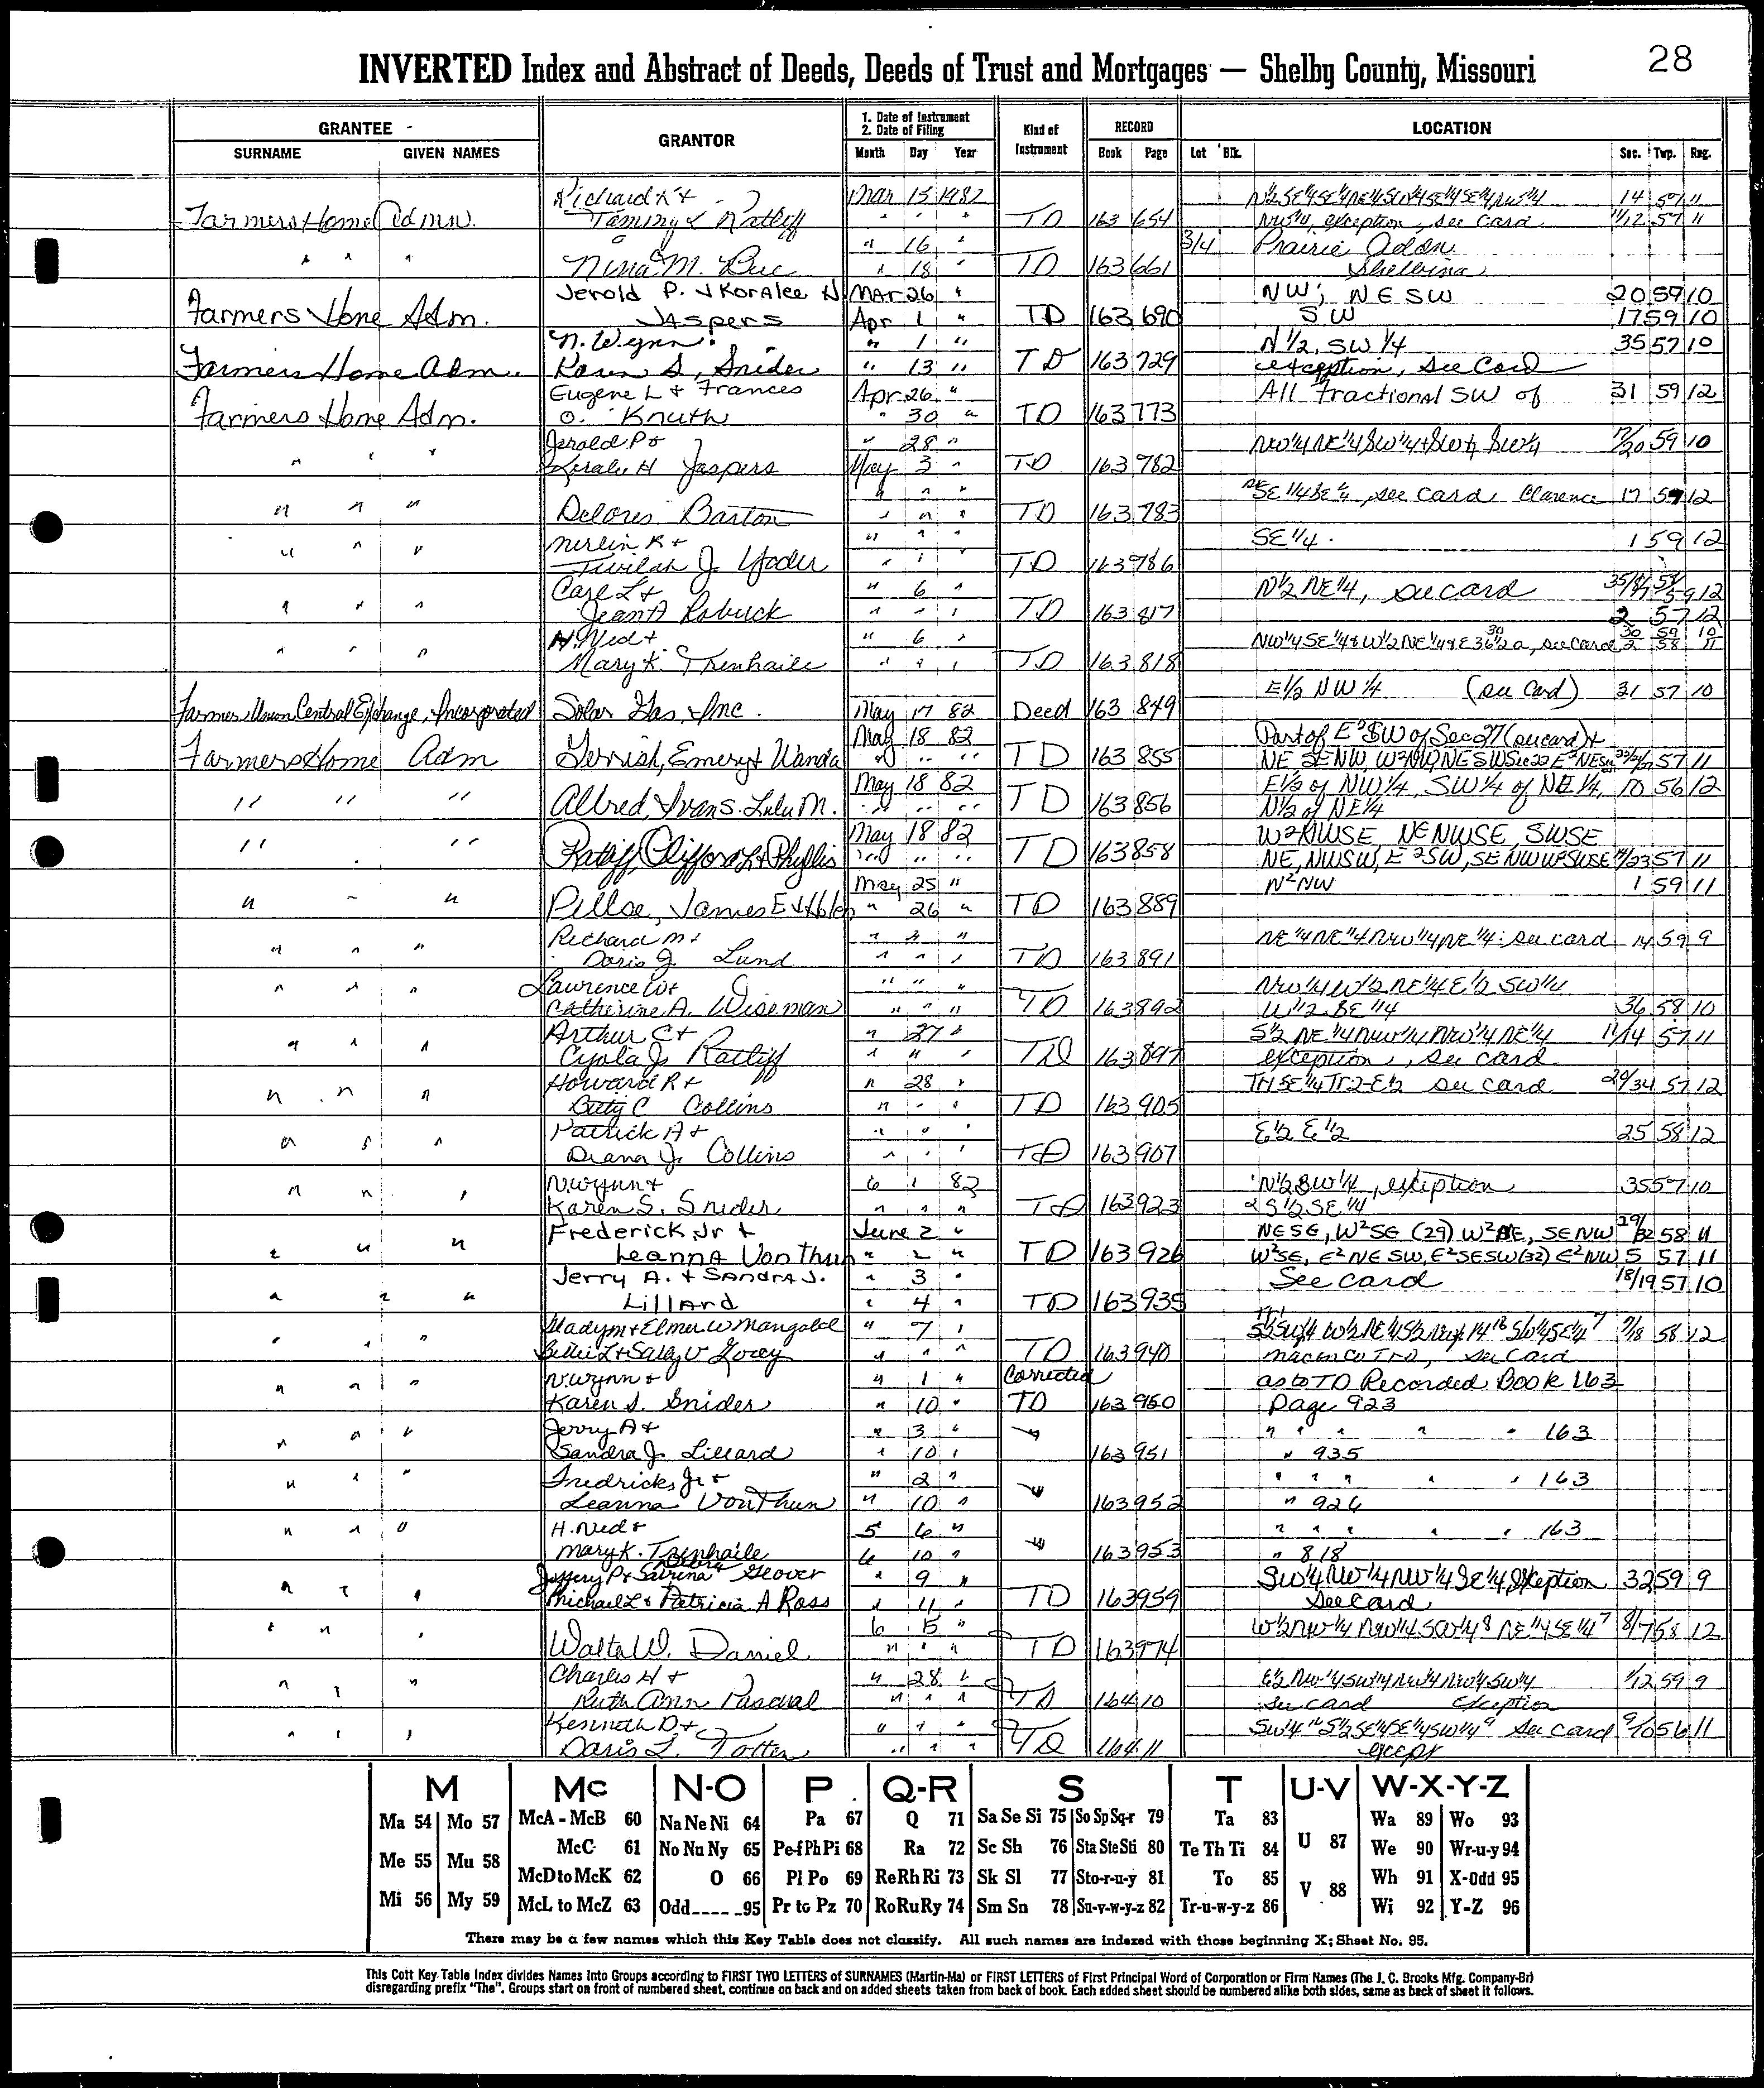 28
INVERTED Index and Abstract of Deeds, Deeds of Trust and Mortgages — Shelby County, Missouri
GRANTEE - GRANTOR 1. Date of Instrument 2. Date of Filing Kind of Instrument RECORD LOCATION
SURNAME GIVEN NAMES Month Day Year Book Page Lot Blk. Sec. Twp. Rng.
Richard K + Mar 15 1982 14 57 11
Farmers Home Admn. Tammy L Ratliff " " " TD 163 654 NW¼, exception, see card 11/12 57 11
" 16 " 3/4 Prairie Addn
" " " Nina M. " 18 " TD 163 661 Shelbina
Jerold P. + Koralee H Mar 26 " NW; NE SW 20 59 10
Farmers Home Adm. Jaspers Apr 1 " TD 163 690 SW 17 59 10
N. Wynn + " 1 " N½, SW ¼ 35 57 10
Farmers Home Adm. Karen S. Snider " 13 " TD 163 729 exception, see Card
Eugene L + Frances Apr 26 " All Fractional SW of 31 59 12
Farmers Home Adm. O. Knuth " 30 " TD 163 773
Jerald P + " 28 " NW¼ NE¼ SW¼ + SW¼ 17/20 59 10
" " " Koralee H Jaspers May 3 " TD 163 782
" " " SE ¼ SE ¼, see card Clarence 17 57 12
" " " Delores Barton " " " TD 163 783
Merlin R + " " " SE ¼. 1 59 12
" " " Twilah J. Yoder " " " TD 163 786
Carl L + " 6 " N½ NE¼, see card 59 12
" " " Jean A Robuck " " " TD 163 817 2 57 12
H. Ned + " 6 " NW¼ SE¼ & W½ NE¼ & E 36½ a, see card 30 59 10
" " " Mary K. Trenhaile " " " TD 163 818 2 58 11
E½ NW ¼ (see card) 31 57 10
Farmers Union Central Exchange, Incorporated Solar Gas, Inc. May 17 82 Deed 163 849
May 18 82 Part of E²SW of Sec 27 (see card) +
Farmers Home Adm Gerrish, Emery + Wanda " " " TD 163 855 NE SENW, W²NW, NESW Sec 22 57 11
May 18 82 E½ of NW¼, SW¼ of NE¼, 10 56 12
" " " Allred, Ivan S. Lulu M. " " " TD 163 856 N½ of NE¼
May 18 82 W²NWSE, NENWSE, SWSE
" " Ratliff, Clifford L + Phyllis " " " TD 163 858 NE, NWSW, E²SW, SENW 57 11
May 25 " N²NW 1 59 11
" " " James E + Helen " 26 " TD 163 889
Richard M + NE¼NE¼NW¼NE¼: see card 14 59 9
" " " Doris J. Lund " " " TD 163 891
Lawrence W + " " " NW¼ W½ NE¼ E½ SW¼
" " " Catherine A. Wiseman " " " TD 163 892 W½ SE ¼ 36 58 10
Arthur C + " 27 " S½ NE¼ NW¼ NW¼ NE¼ 11/14 57 11
" " " Cyola J. Ratliff " " " TD 163 897 exception, see card
Howard R + " 28 " Tr1 SE¼ Tr 2-E½ see card 57 12
" " " Betty C Collins " " " TD 163 905
Patrick A + " " " E½ E½ 25 58 12
" " " Diana J. Collins " " " TD 163 907
N. Wynn + 6 1 82 N½ SW¼, exception 35 57 10
" " " Karen S. Snider " " " TD 163 923 & S½ SE ¼
Frederick Jr + June 2 " NESE, W²SE (29) W²NE, SENW 29/32 58 11
" " " Leanna Von Thun " 2 " TD 163 926 W²SE, E²NESW, E²SESW (32) E²NW 5 57 11
Jerry A. + Sandra J. " 3 " See card 18/19 57 10
" " " Lillard " 4 " TD 163 935
Glady M + Elmer W Mangold " 7 " 7/18 58 12
" " " " " " TD 163 940 Macon Co Tr 2, see card
N. Wynn + " 1 " Corrected as to TD Recorded Book 163
" " " Karen S. Snider " 10 " TD 163 950 Page 923
Jerry A + " 3 " " " " " " 163
" " " Sandra J. Lillard " 10 " " 163 951 " 935
Fredrick Jr + " 2 " " " " " " 163
" " " Leanna Von Thun " 10 " " 163 952 " 926
H. Ned + 5 6 " " " " " " 163
" " " Mary K. Trenhaile 6 10 " " 163 953 " 818
Jeffery P + Sabrina Geover " 9 " SW¼ NW¼ NW¼ SE¼, Exception 32 59 9
" " " Michael L + Patricia A Ross " 11 " TD 163 959 See Card
6 15 " W½ NW¼ NW¼ SW¼ 8 NE¼ SE¼ 7 8/7 58 12
" " " Walter W. Daniel " " " TD 163 974
Charles H + " 28 " E½ NW¼ SW¼ NW¼ NW¼ SW¼ 1/12 59 9
" " " Ruth Ann Pascual " " " TD 164 10 see card Exception
Kenneth D + " " " see card 9/10 56 11
" " " Doris L. Totten " " " TD 164 11 except
M Mc N-O P Q-R S T U-V W-X-Y-Z
Ma 54 Mo 57 McA - McB 60 Na Ne Ni 64 Pa 67 Q 71 Sa Se Si 75 So Sp Sq-r 79 Ta 83 U 87 Wa 89 Wo 93
Me 55 Mu 58 McC 61 No Nu Ny 65 Pe-f Ph Pi 68 Ra 72 Sc Sh 76 Sta Ste Sti 80 Te Th Ti 84 We 90 Wr-u-y 94
McD to McK 62 O 66 Pl Po 69 Re Rh Ri 73 Sk Sl 77 Sto-r-u-y 81 To 85 V 88 Wh 91 X-Odd 95
Mi 56 My 59 McL to McZ 63 Odd_____95 Pr to Pz 70 Ro Ru Ry 74 Sm Sn 78 Su-v-w-y-z 82 Tr-u-w-y-z 86 Wi 92 Y-Z 96
There may be a few names which this Key Table does not classify. All such names are indexed with those beginning X; Sheet No. 95.
This Cott Key Table Index divides Names Into Groups according to FIRST TWO LETTERS of SURNAMES (Martin-Ma) or FIRST LETTERS of First Principal Word of Corporation or Firm Names (The J. C. Brooks Mfg. Company-Br)
disregarding prefix "The". Groups start on front of numbered sheet, continue on back and on added sheets taken from back of book. Each added sheet should be numbered alike both sides, same as back of sheet it follows.